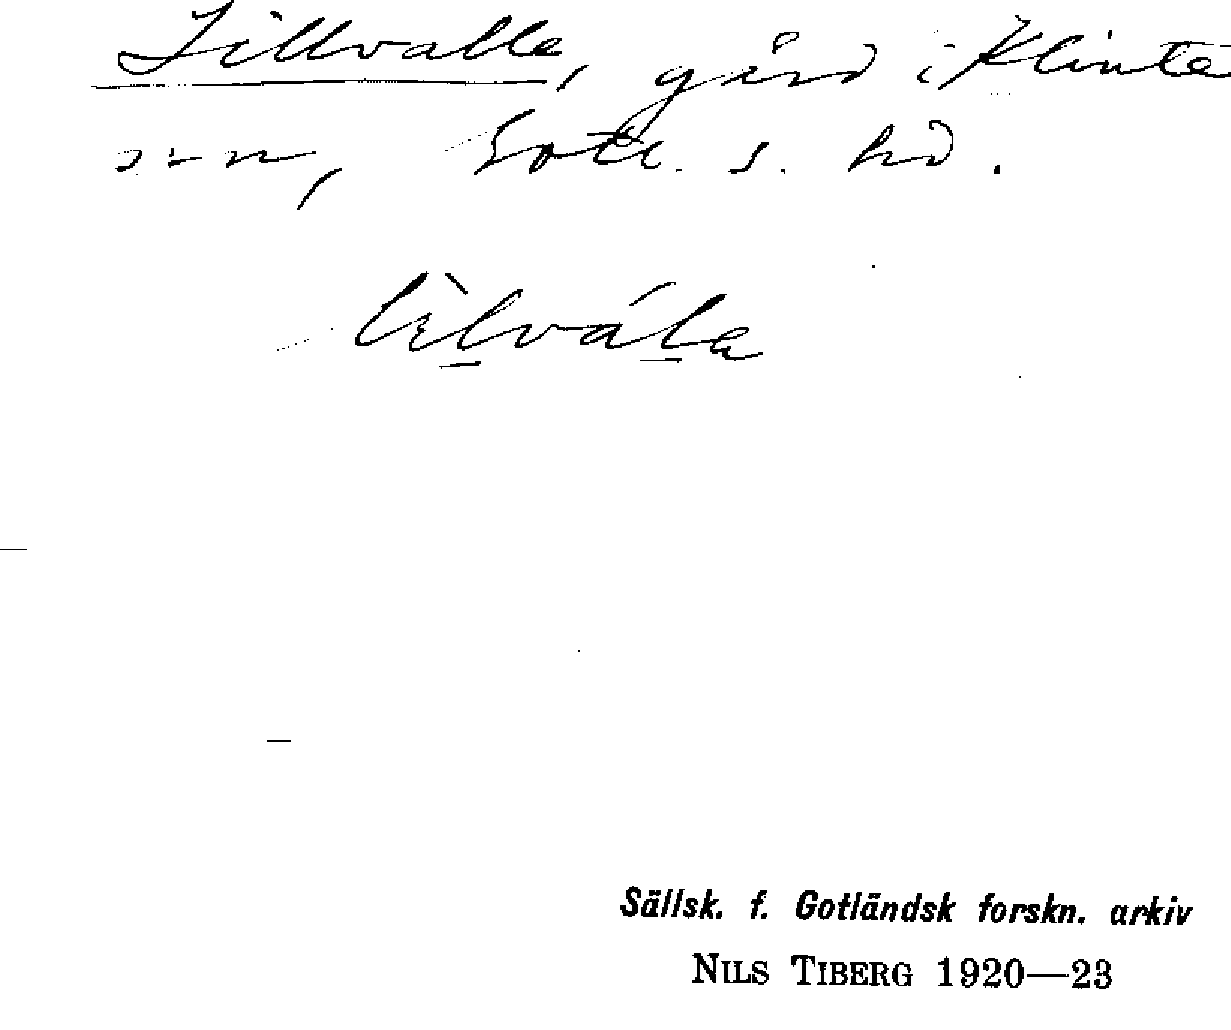 Lillvalle, gård i Klinte
sn, Gotl. s. hd.
lìlvála
Sällsk. f. Gotländsk forskn. arkiv
NILS TIBERG 1920—23